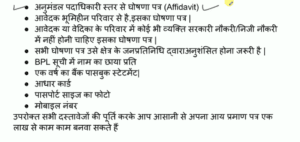 अनुमंडल पदाधिकारी स्तर से घोषणा पत्र (Affidavit)
आवेदक भूमिहीन परिवार से है,इसका घोषणा पत्र |
आवेदक या वेदिका के परिवार में कोई भी व्यक्ति सरकारी नौकरी/निजी नौकरी
में नहीं होनी चाहिए इसका घोषणा पत्र |
सभी घोषणा पत्र उसे क्षेत्र के जनप्रतिनिधि द्वाराअनुशंसित होना जरूरी है |
BPL सूची में नाम का छाया प्रति
एक वर्ष का बैंक पासबुक स्टेटमेंट|
आधार कार्ड
पासपोर्ट साइज का फोटो
मोबाइल नंबर
उपरोक्त सभी दस्तावेजों की पूर्ति करके आप आसानी से अपना आय प्रमाण पत्र एक
लाख से काम काम बनवा सकते हैं